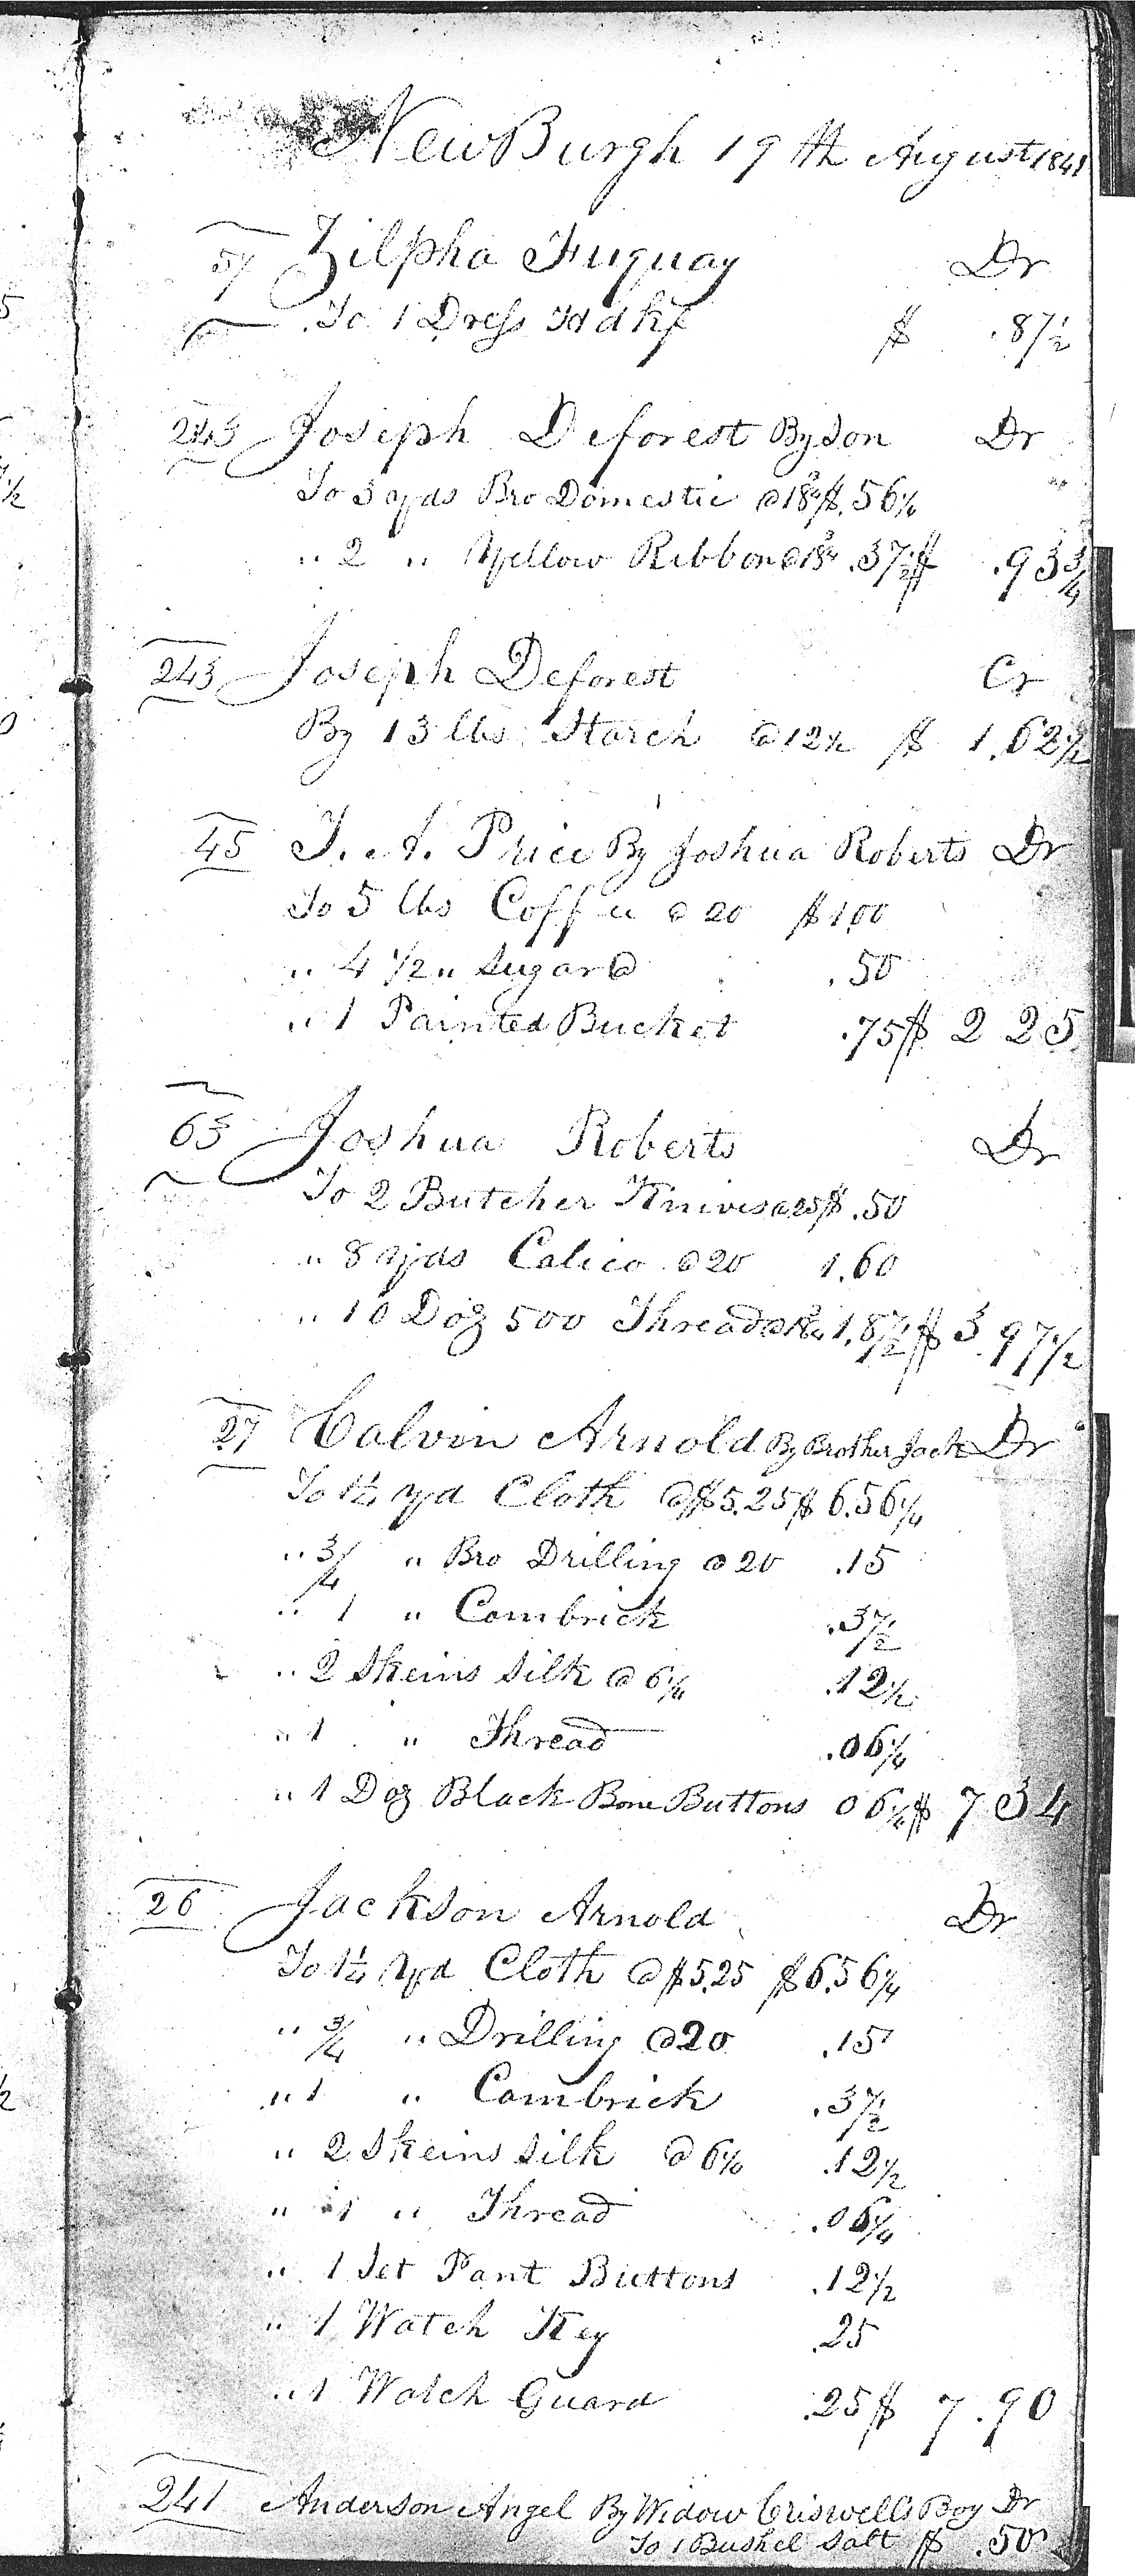 NewBurgh 19th August 1841
57 Zilpha Fuquay Dr
To 1 Dress Hdkf $ .87 1/2
243 Joseph Deforest By Son Dr
To 3 yds Bro Domestic @ 18 3/4 $ .56 1/4
" 2 " Yellow Ribbon @ 18 3/4 .37 1/2 $ .93 3/4
243 Joseph Deforest Cr
By 13 lbs Starch @ 12 1/2 $ 1.62 1/2
45 T. A. Price By Joshua Roberts Dr
To 5 lbs Coffee @ 20 $ 1.00
" 4 1/2 " Sugar @ .50
" 1 Painted Bucket .75 $ 2 25
63 Joshua Roberts Dr
To 2 Butcher Knives @ 25 $ .50
" 8 yds Calico @ 20 1.60
" 10 Doz 500 Thread @ 18 3/4 1.87 1/2 $ 3.97 1/2
27 Calvin Arnold By Brother Jack Dr
To 1 1/4 yd Cloth @ $5.25 $ 6.56 1/4
" 3/4 " Bro Drilling @ 20 .15
" 1 " Cambrick .37 1/2
" 2 Skeins Silk @ 6 1/4 .12 1/2
" 1 " Thread .06 1/4
" 1 Doz Black Bone Buttons 06 1/4 $ 7 34
26 Jackson Arnold Dr
To 1 1/4 Yd Cloth @ $5.25 $6.56 1/4
" 3/4 " Drilling @ 20 .15
" 1 " Cambrick .37 1/2
" 2 Skeins Silk @ 6 1/4 .12 1/2
" 1 " Thread .06 1/4
" 1 Set Pant Buttons .12 1/2
" 1 Watch Key .25
" 1 Watch Guard .25 $ 7.90
241 Anderson Angel By Widow Criswells Boy Dr
To 1 Bushel Salt $ .50